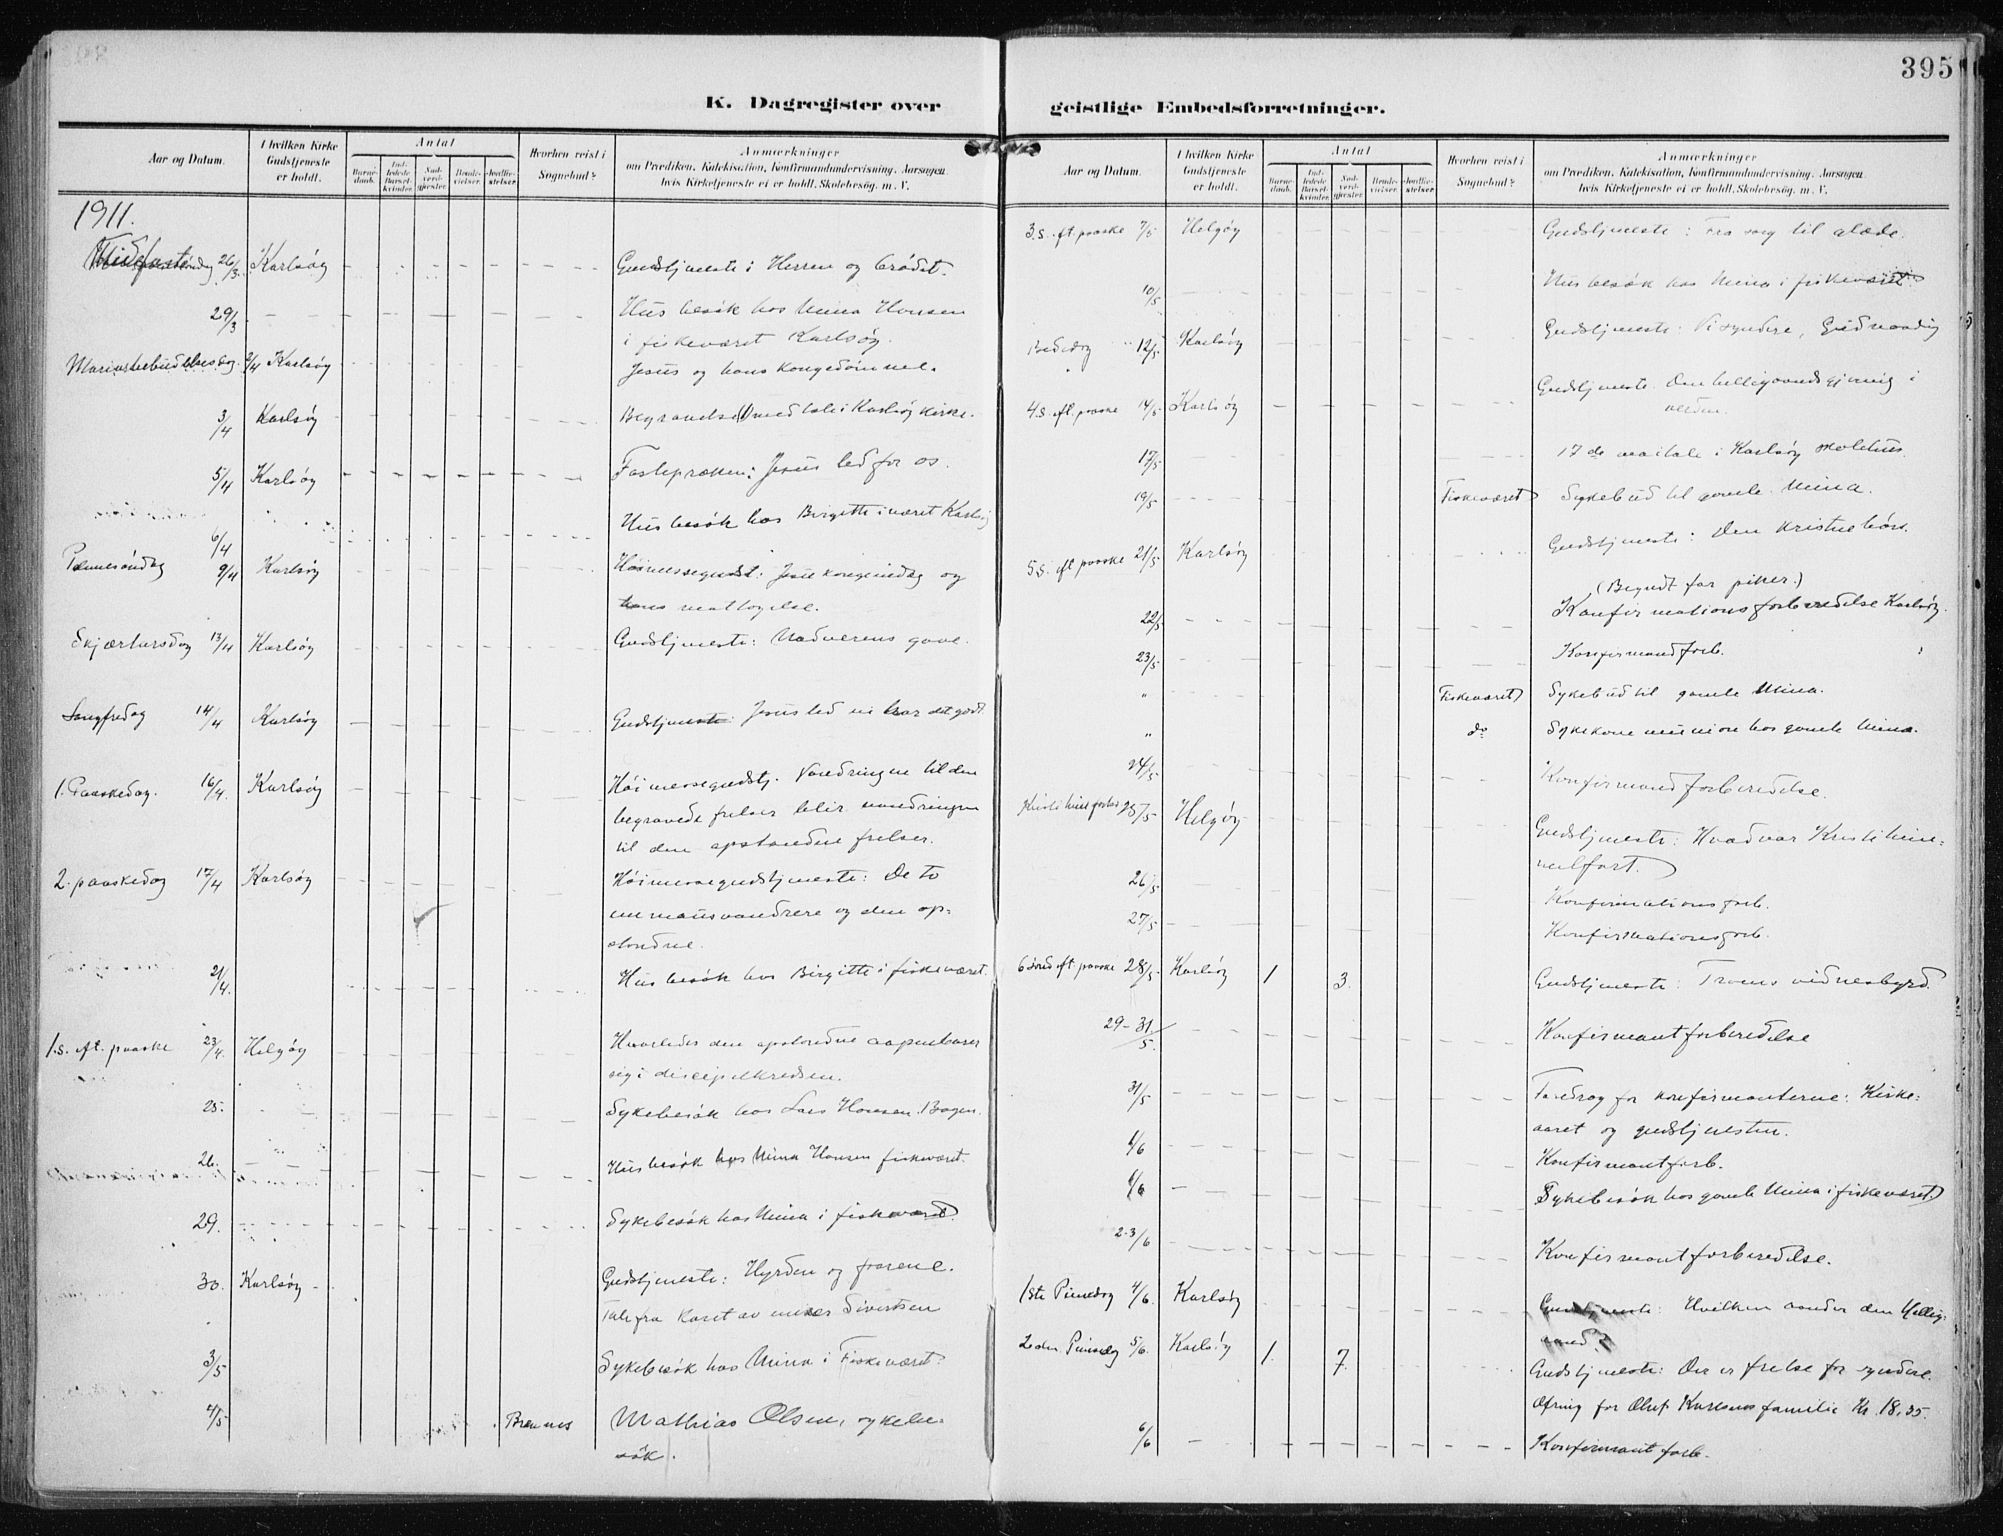 395
K. Dagregister over
geistlige Embedsforretninger.
Aar og Datum.
I hvilken Kirke Gudstjeneste er holdt.
Antal
Barnedaab. Indledede Barselkvinder. Nadverdgjester. Bortvielser. Jordfæstelser.
Hvorhen reist i Sognebud?
Anmærkninger
om Prædiken, Katekisation, Konfirmandundervisning. Aarsagen,
hvis Kirketjeneste ei er holdt. Skolebesøg. m. V.
1911.
Midfaste 26/3 Karlsöy Gudstjeneste i Herren og brödet.
29/3 Husbesök hos Mina Hansen
i fiskeværet Karlsöy.
Mariæ bebudelsesdag. 2/4 Karlsöy Jesus og hans kongedömme.
3/4 Karlsöy Begravelse (1) med tale i Karlsöy kirke.
5/4 Karlsöy Fastepræken: Jesus led for os.
6/4 Husbesök hos Birgitte i været Karlsöy
Palmesöndag 9/4 Karlsöy Höimessegudst: Jesu kongeindtog og
hans mottagelse.
Skjærtorsdag 13/4 Karlsöy Gudstjeneste: Nadverens gave.
Langfredag 14/4 Karlsöy Gudstjeneste: Jesus led vi har det godt
1. Paaskedag. 16/4. Karlsöy Höimessegudstj. Vandringen til den
begravede frelser blir vandringen
til den opstandne frelser.
2. paaskedag 17/4 Karlsöy Höimessegudstjeneste: De to
emmausvandrere og den op-
standne.
21/4. Husbesök hos Birgitte i fiskeværet.
1.s. eft. paaske 23/4. Helgöy Hvorledes den opstandne aapenbarer
sig i discipelkredsen.
25. Sykebesök hos Lars Hansen, Bagen.
26. Husbesök hos Mina Hansen fiskeværet.
29. Sykebesök hos Mina i fiskeværet.
30. Karlsöy Gudstjeneste: Hyrden og faarene.
Tale fra koret av Sivertsen
3/5 Sykebesök hos Mina i Fiskeværet.
4/5 Brennes Mathias Olsen, sykebe-
sök.
Aar og Datum.
I hvilken Kirke Gudstjeneste er holdt.
Antal
Barnedaab. Indledede Barselkvinder. Nadverdgjester. Bortvielser. Jordfæstelser.
Hvorhen reist i Sognebud?
Anmærkninger
om Prædiken, Katekisation, Konfirmandundervisning. Aarsagen,
hvis Kirketjeneste ei er holdt. Skolebesøg. m. V.
3.s. eft paaske 7/5 Helgöy Gudstjeneste: Fra sorg til glæde.
10/5 Husbesök hos Mina i fiskeværet
Bededag 12/5 Karlsöy Gudstjeneste: Vi syndere, Gud naadig
4.s. eft. paaske 14/5 Karlsöy Gudstjeneste. Den helligaands gjerning i
verden.
17/5 17de maitale i Karlsöy skolehus.
19/5 Fiskeværet Sykebud til gamle Mina.
5.s. eft paaske 21/5 Karlsöy Gudstjeneste: Den kristne bön.
(Begyndt for piker.)
22/5 Konfirmationsforberedelse Karlsöy.
23/5 Konfirmandforb.
" Fiskeværet Sykebud til gamle Mina.
" do Sykekommunion hos gamle Mina.
24/5 Konfirmandforberedelse.
Kristi himmelfartsd 25/5 Helgöy Gudstjeneste: Hvad var Kristi him-
melfart.
26/5 Konfirmationsforb.
27/5 Konfirmationsforb.
6 sönd eft. paaske 28/5. Karlsöy 1 3. Gudstjeneste: Troens vidnesbyrd.
29-31/5. Konfirmantforberedelse
31/5 Foredrag for konfirmanterne: Kirke-
aaret og gudstjenesten.
1/6 Konfirmantforb.
1/6 Sykebesök hos gamle Mina i fiskeværet
2-3/6 Konfirmantforberedelse.
1ste Pinsedag 4/6. Karlsöy Gudstjeneste: Hvilken aand er den Hellig-
aand?
2den Pinsedag 5/6. Karlsöy 1. 7. Gudstjeneste: Der er frelse for syndere.
Ofring for Oluf Karlsens familie Kr. 18,35.
6/6 Konfirmant forb.